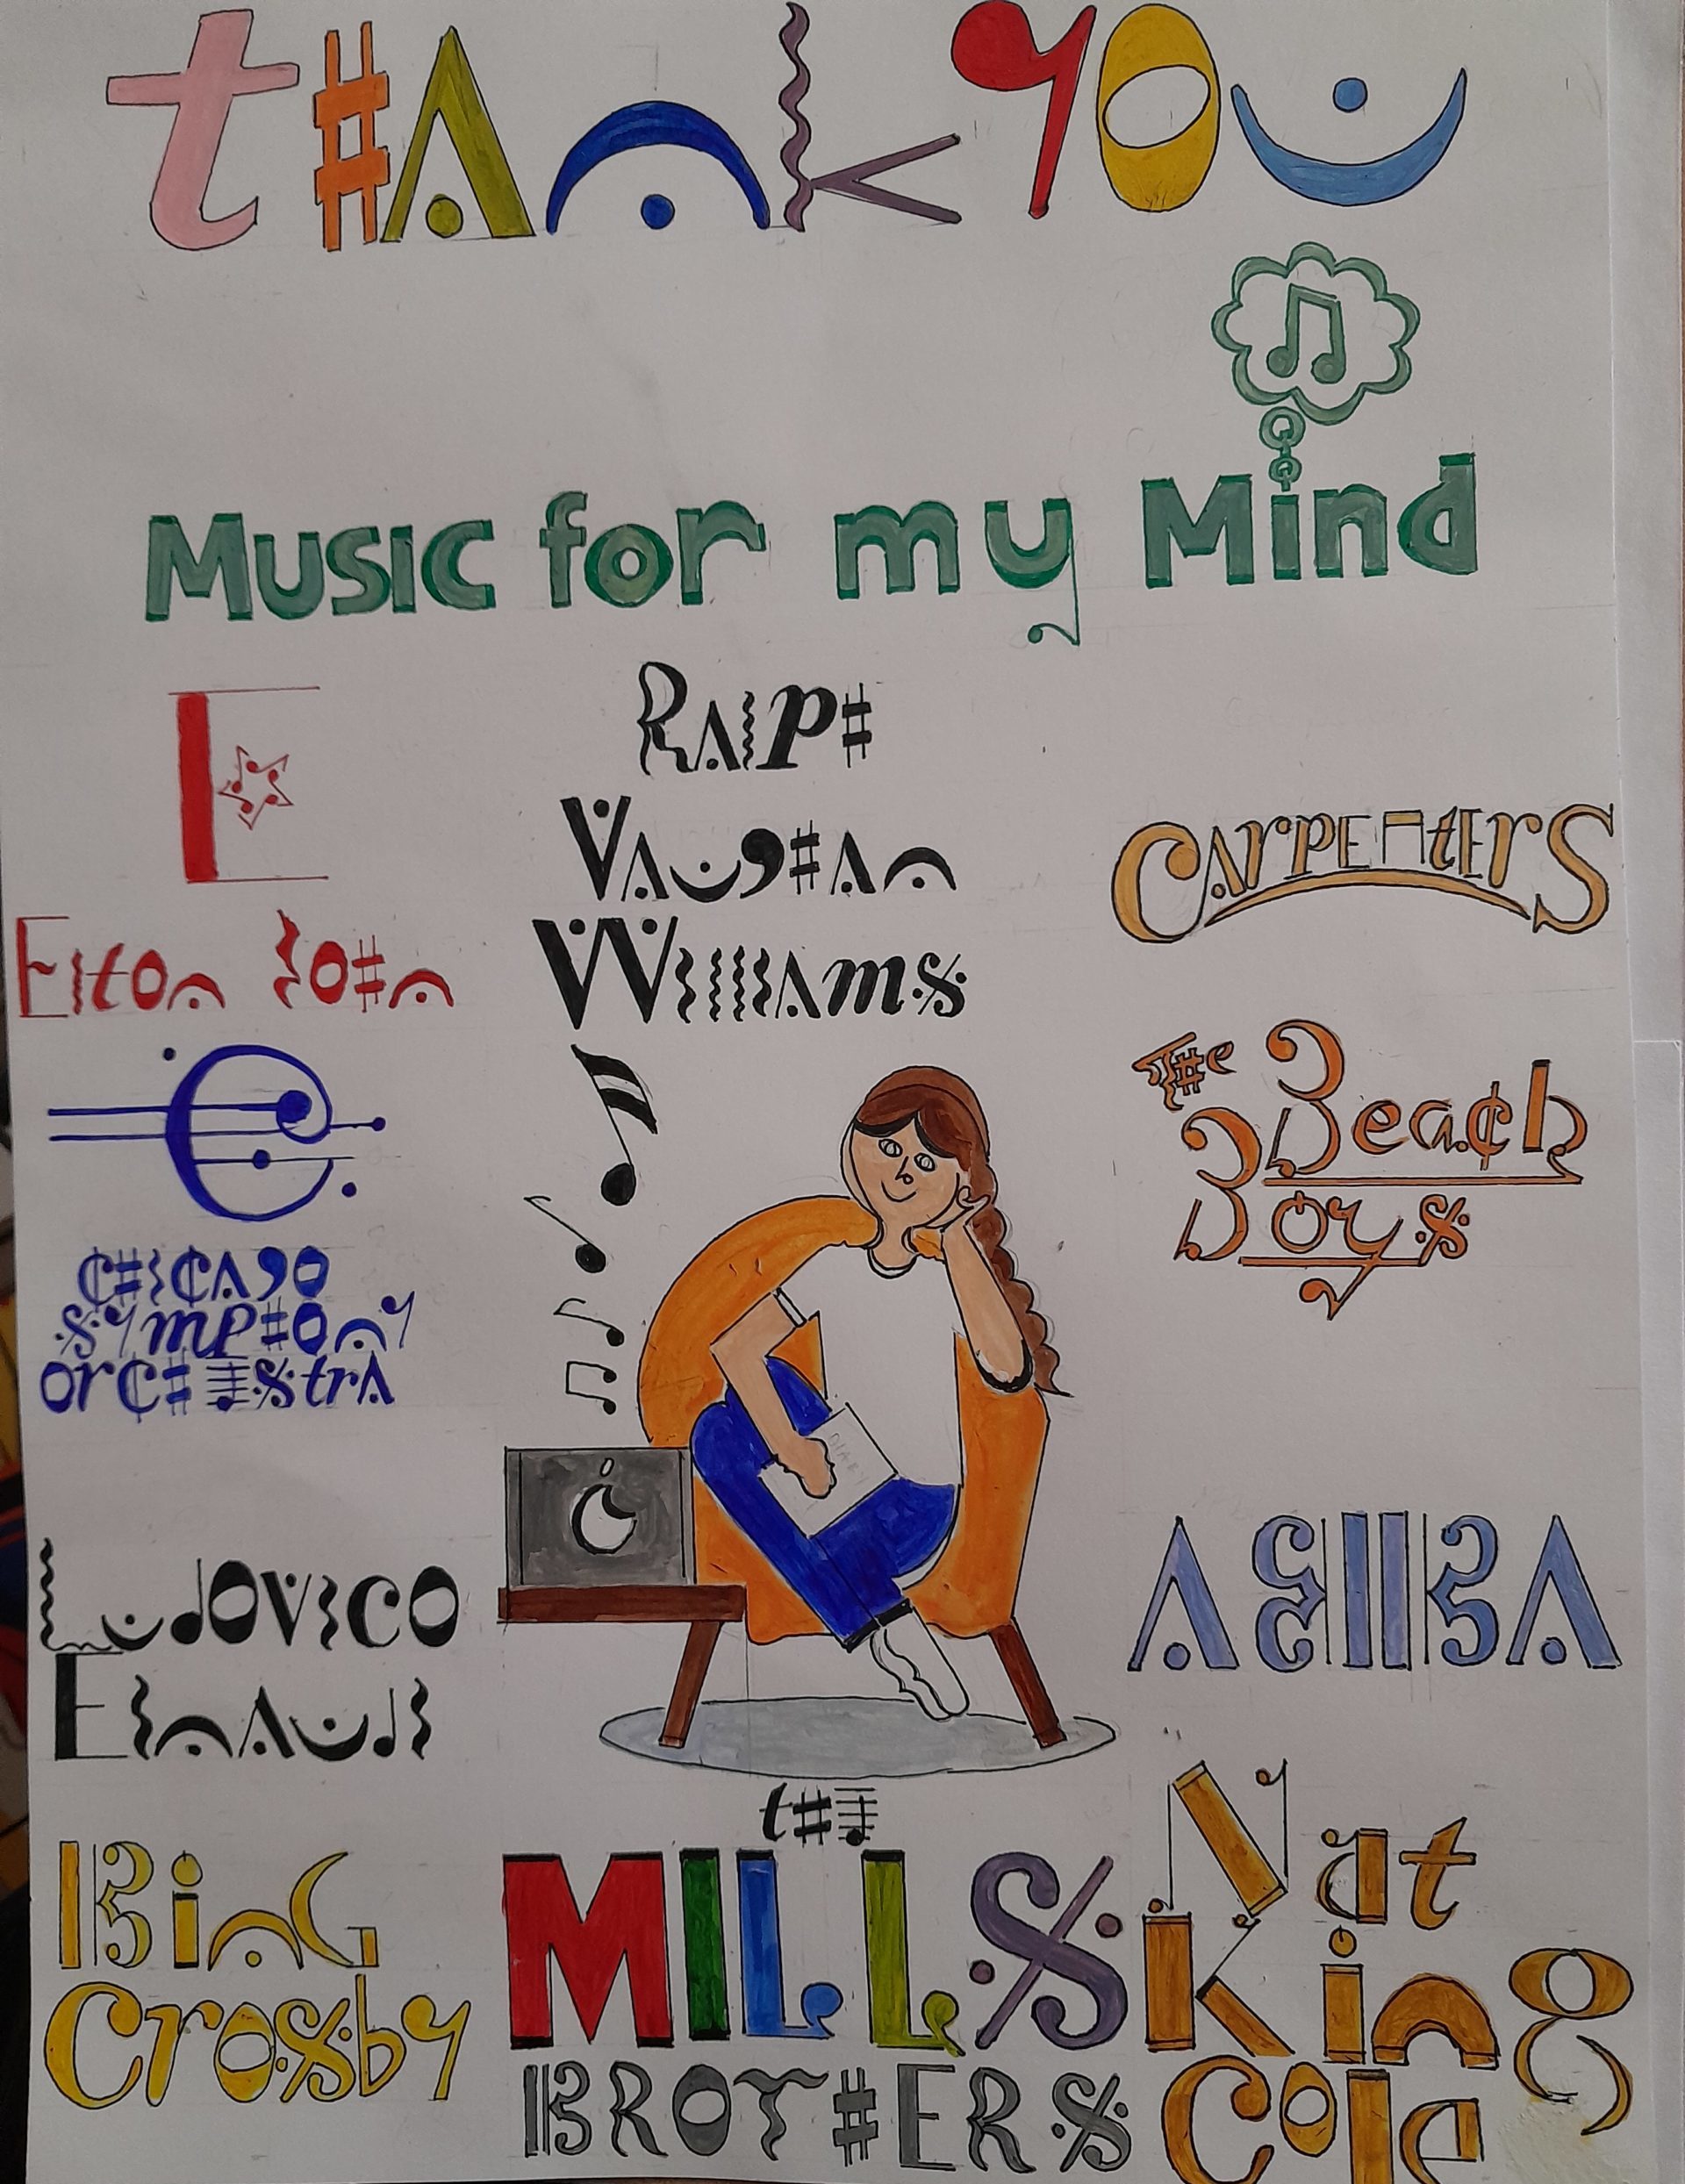 tHANK YOU
Music for my Mind
E
Elton JOHN
Ralph
Vaughan
Williams
CARPENTERS
C
CHICAGO
SYmpHONY
orCHEStrA
The Beach
Boys
DIARY
ABBA
Ludovico
Einaudi
BiNG
Crosby
tHE
MILLS
BROTHERS
Nat
King
Cole